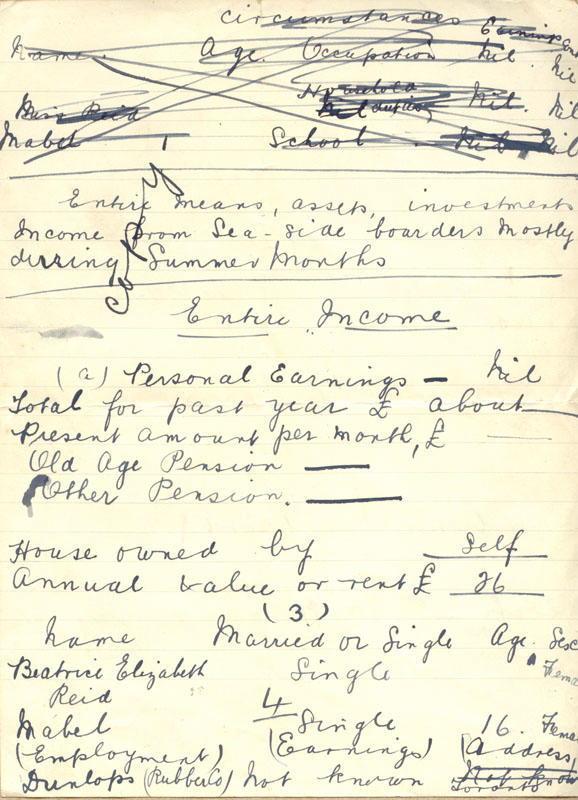 Circumstances
Name. Age. Occupation Earnings and
Nil. Nil
Miss Reid Household duties Nil. Nil
Mabel 1 School Nil Nil
Entire means, assets, investments
Income from Sea-side boarders Mostly
durring Summer Months
Copy
Entire Income
(a) Personal Earnings — Nil
Total for past year £ about —
Present amount per month, £ —
Old Age Pension —
Other Pension. —
House owned by Self
Annual value or rent £ 26
(3)
Name Married or Single Age. Sex
Beatrice Elizabeth Single Fema
Reid
4
Mabel Single 16. Fema
(Employment) (Earnings) (Address,
Dunlops (Rubber Co) Not known Not know
Toronto